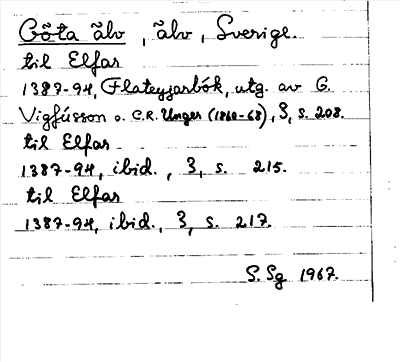 Göta älv, älv, Sverige.
til Elfar
1387-94, Flateyjarbók, utg. av G.
Vigfússon o. C.R. Unger (1860-68), 3, s. 208.
til Elfar
1387-94, ibid., 3, s. 215.
til Elfar
1387-94, ibid., 3, s. 217.
S. Sg 1967.